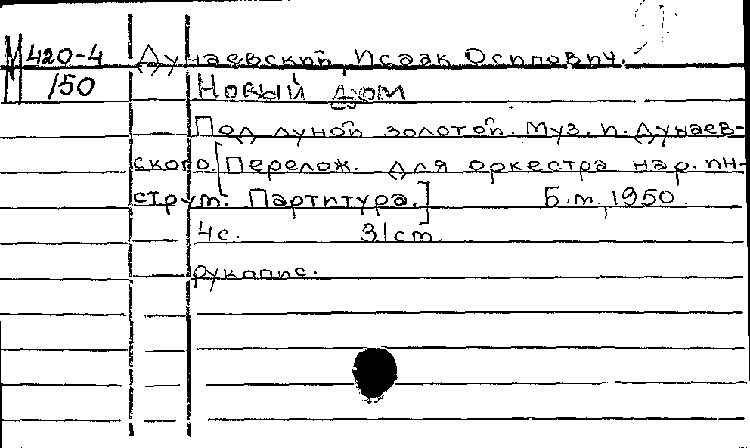 М 420-4 Дунаевский, Исаак Осипович.
150 Новый дом
Под луной золотой. Муз. И. Дунаев-
ского. [Перелож. для оркестра нар. ин-
струм. Партитура.] Б.м., 1950.
4с. 31см.
рукопис.